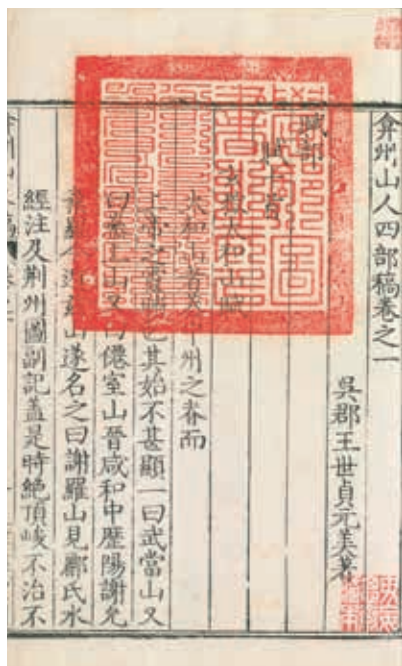 弇州山人四部稿卷之一
吳郡王世貞元美著
賦部
賦十首
太和山賦
太和山者州之脊而
上帝之時也其始不甚顯一曰武當山又
曰上山又曰僊室山晉咸和中歷陽謝允
山遂名之曰謝羅山見酈氏水
經注及荊州圖副記蓋是時絕頂峻不治不